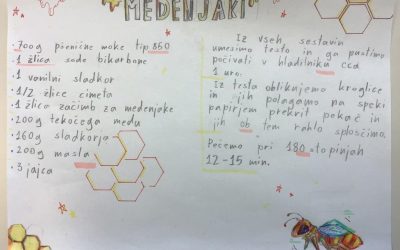 MEDENJAKI
• 700g pšenične moke tip 850
• 1 žlica sode bikarbone
• 1 vanilni sladkor
• 1/2 žlice cimeta
• 1 žlica začimb za medenjake
• 200g tekočega medu
• 160g sladkorja
• 200g masla
• 3 jajca
Iz vseh sestavin
umesimo testo in ga pustimo
počivati v hladilniku cca
1 uro.
Iz testa oblikujemo kroglice
in jih polagamo na s peki
papirjem prekrit pekač in
jih ob tem rahlo sploščimo.
Pečemo pri 180 stopinjah
12-15 min.